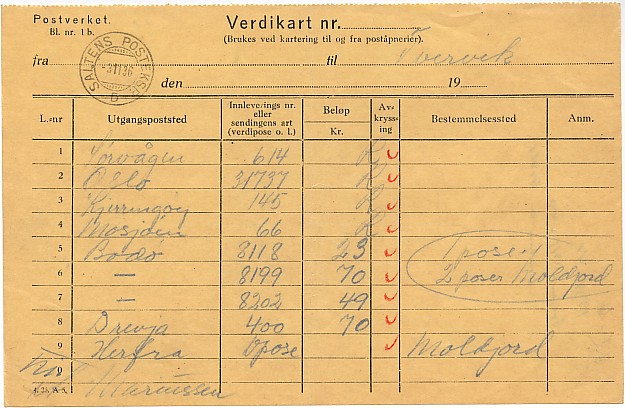 Postverket.
Bl. nr. 1 b.
Verdikart nr.
(Brukes ved kartering til og fra poståpnerier).
SALTENS POSTEKSP.
-3 11 36
B
fra til Tvervik
den 19
L.-nr Utgangspoststed Innleverings nr. eller sendingens art (verdipose o. l.) Beløp Kr. Av-kryss-ing Bestemmelsessted Anm.
1 Sørvågen 614 R
2 Oslo 31737 R
3 Kjerringøy 145 R
4 Mosjøen 66 R
5 Bodø 8118 23 1 pose
6 — 8199 70 2 poser Moldjord
7 — 8202 49
8 Drevja 400 70
9 Herfra Opose Moldjord
9
Mariussen